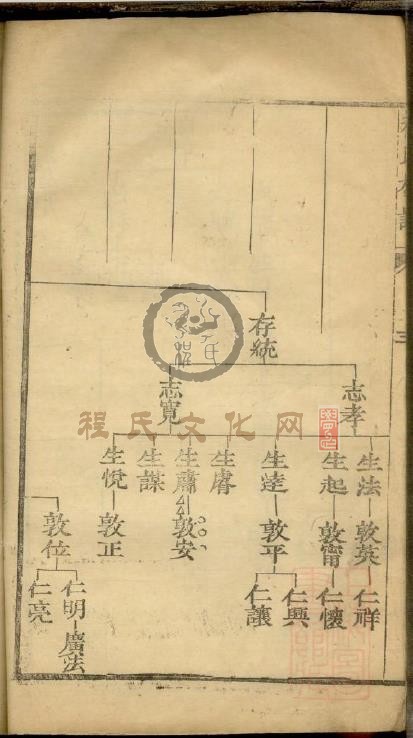 存統
志孝
志寬
生法
敦英
仁祥
生起
敦甯
仁懷
生逵
敦平
仁興
仁讓
生膚
生肅
敦安
生謀
生悅
敦正
敦位
仁明
廣法
仁亮
程氏文化网